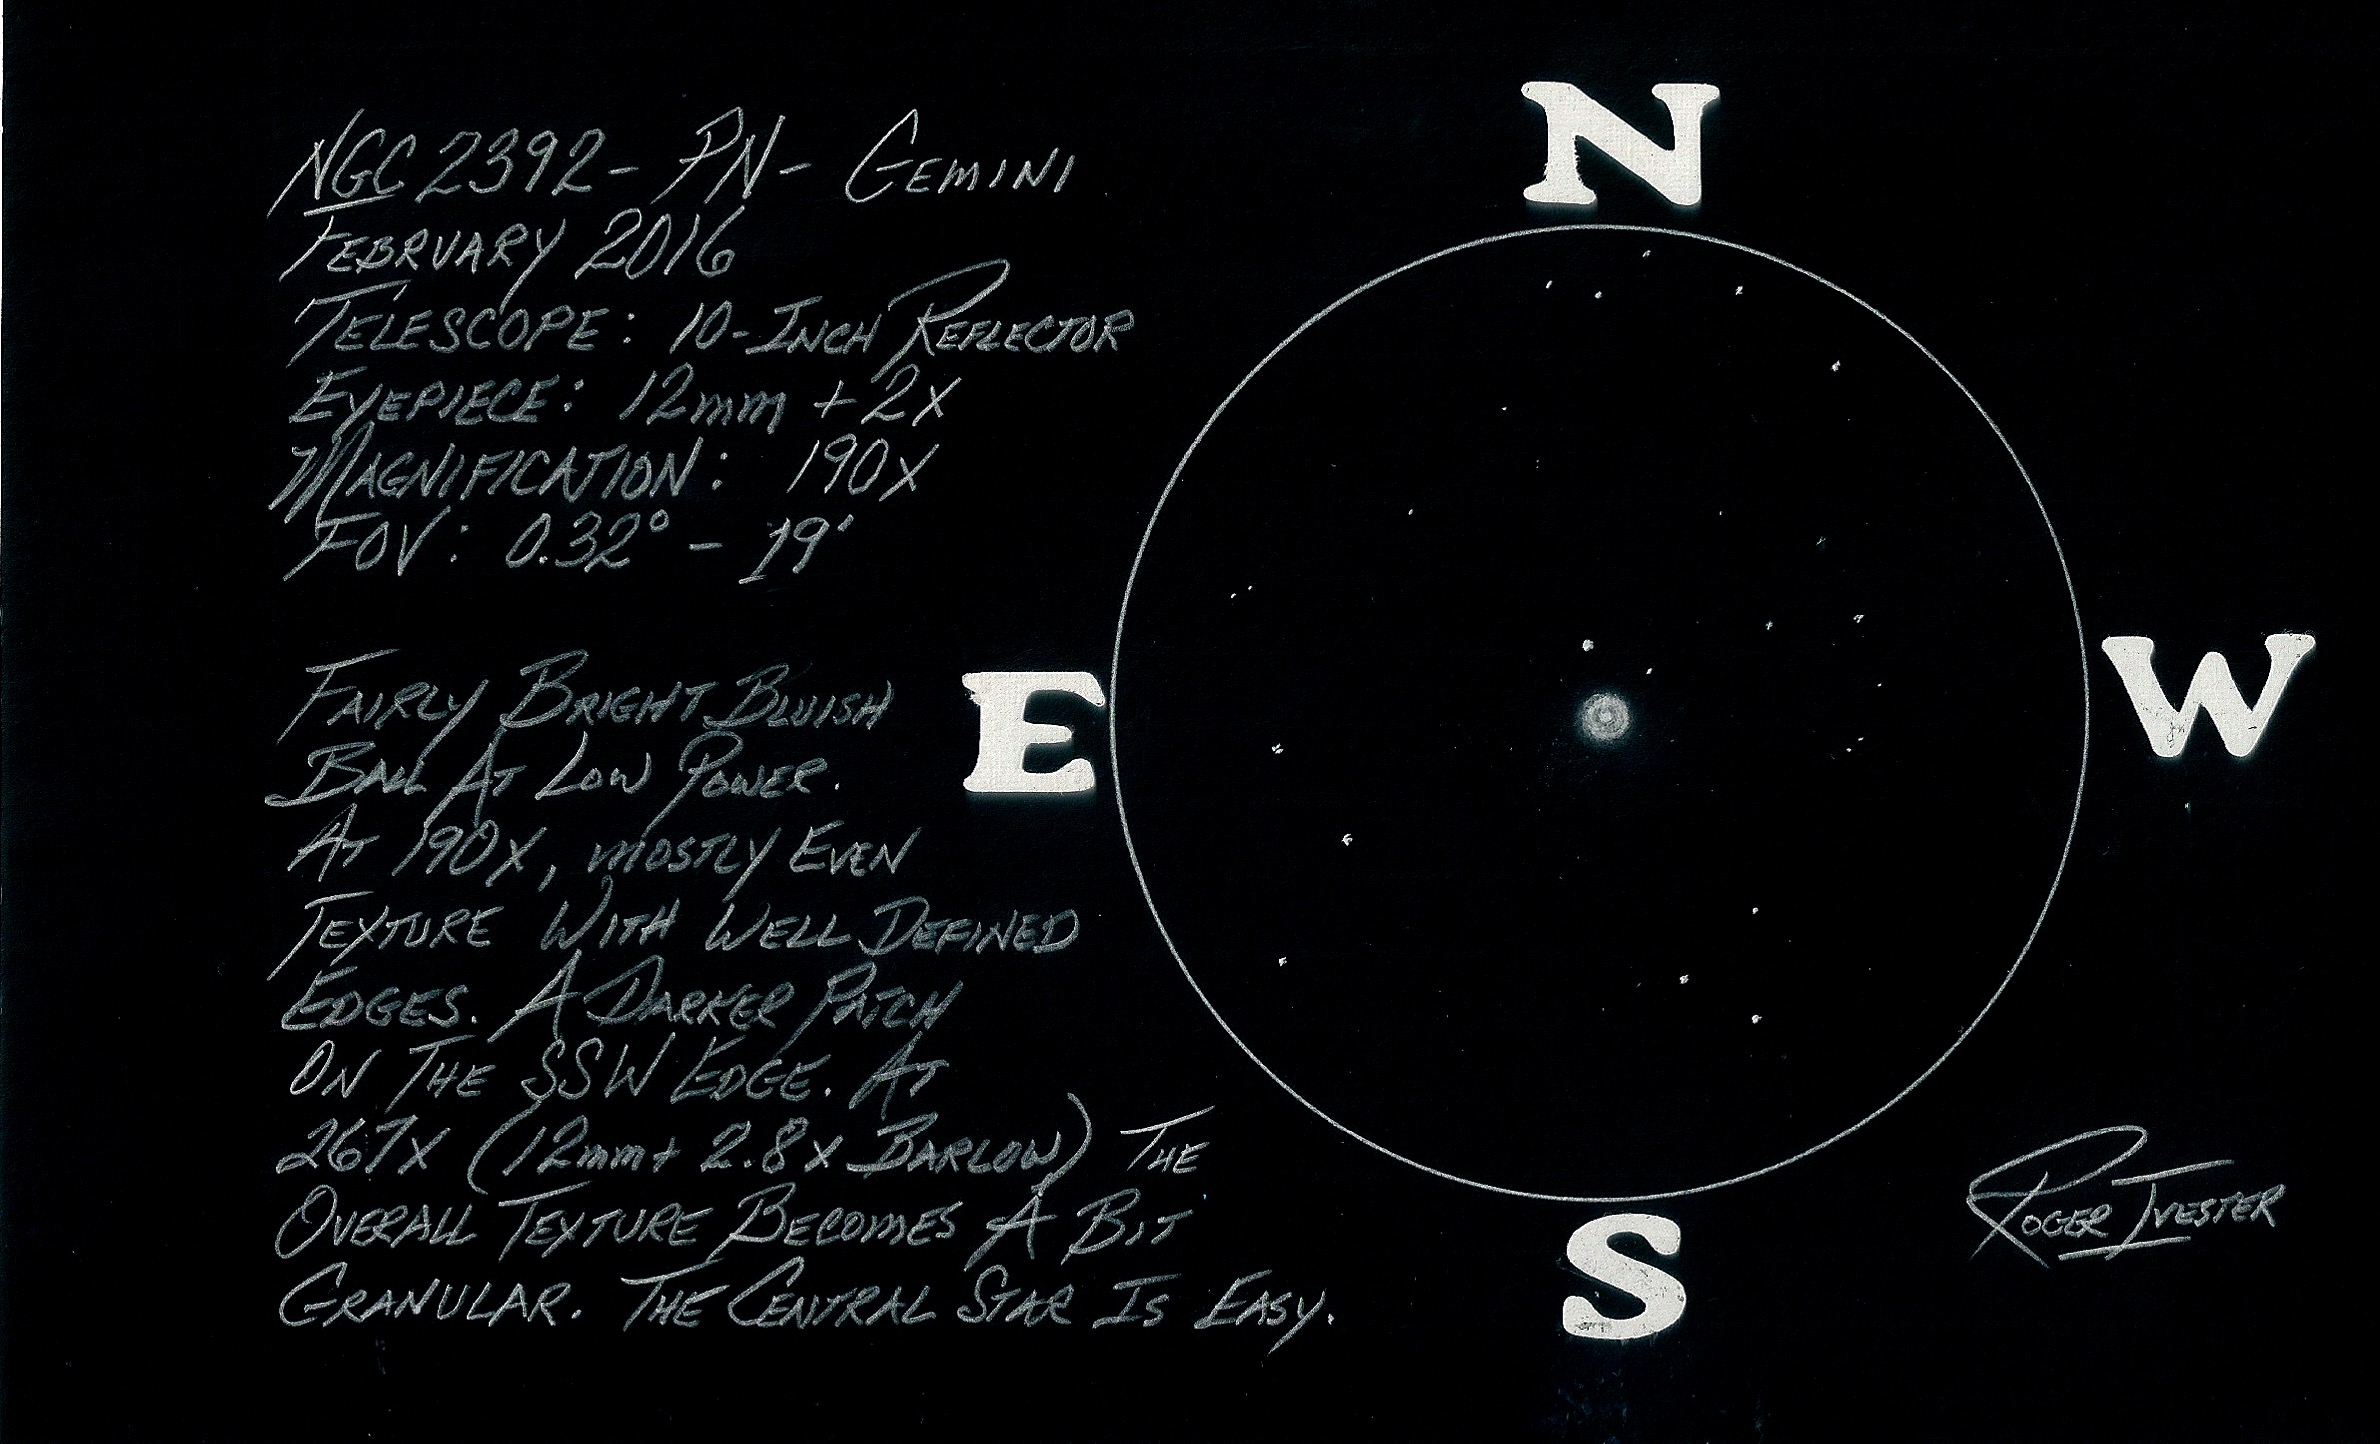 NGC 2392 - PN - GEMINI
FEBRUARY 2016
TELESCOPE: 10-INCH REFLECTOR
EYEPIECE: 12mm + 2X
MAGNIFICATION: 190X
FOV: 0.32° - 19'
FAIRLY BRIGHT BLUISH
BALL AT LOW POWER.
AT 190X, MOSTLY EVEN
TEXTURE WITH WELL DEFINED
EDGES. A DARKER PATCH
ON THE SSW EDGE. AT
267X (12mm + 2.8X BARLOW) THE
OVERALL TEXTURE BECOMES A BIT
GRANULAR. THE CENTRAL STAR IS EASY.
N
E
W
S
ROGER IVESTER